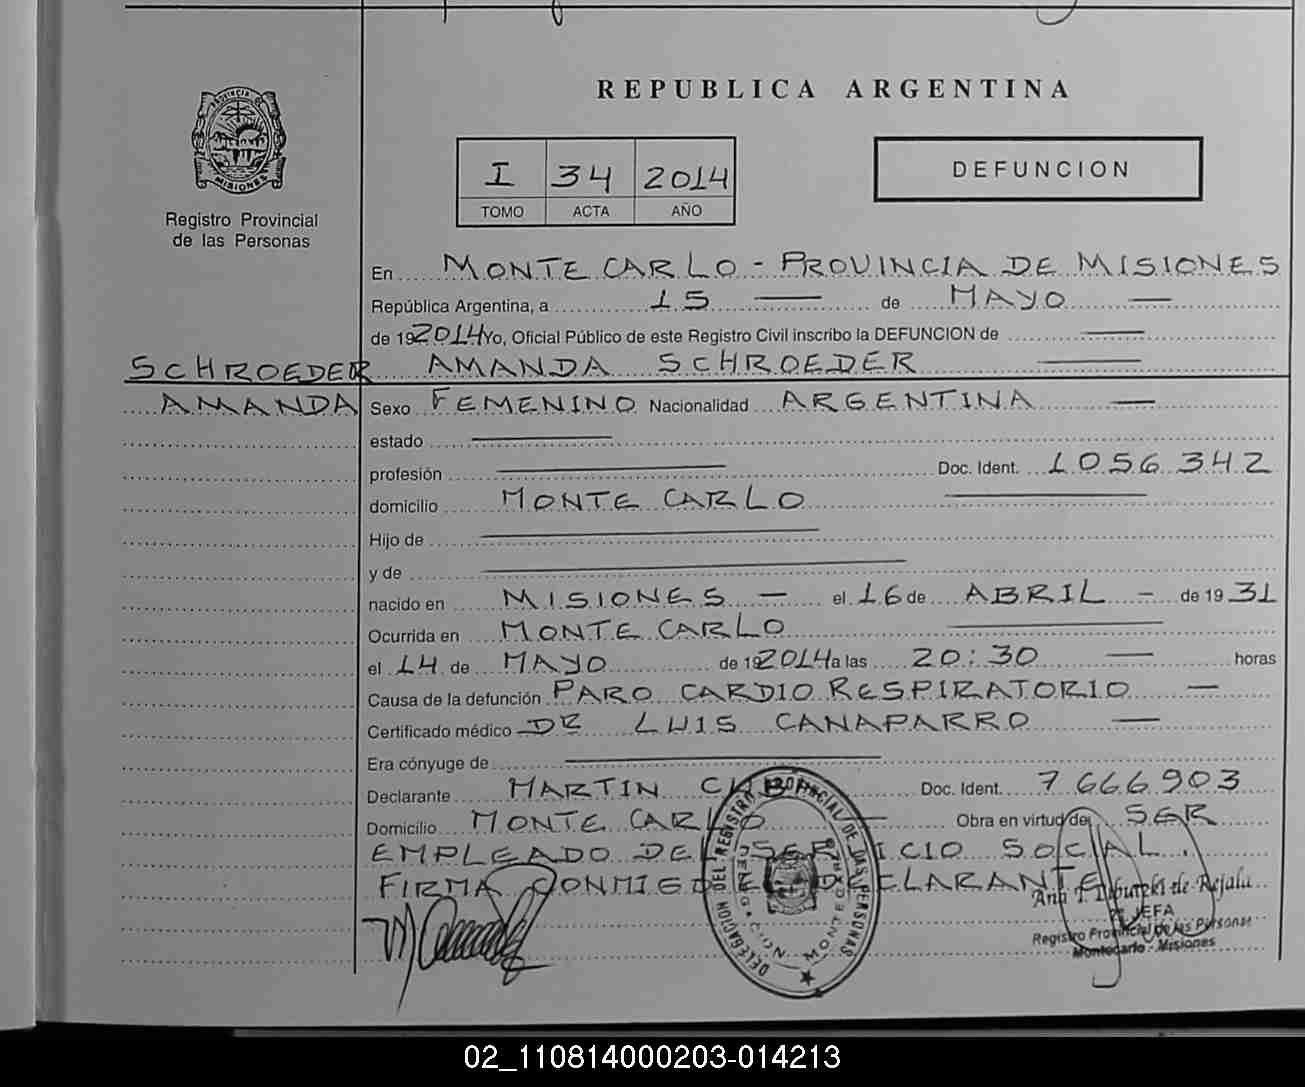 REPUBLICA ARGENTINA
PROVINCIA DE
MISIONES
Registro Provincial
de las Personas
DEFUNCION
I 34 2014
TOMO ACTA AÑO
En MONTE CARLO - PROVINCIA DE MISIONES
República Argentina, a 15 — de MAYO —
de 192014 Yo, Oficial Público de este Registro Civil inscribo la DEFUNCION de —
SCHROEDER AMANDA SCHROEDER —
AMANDA Sexo FEMENINO Nacionalidad ARGENTINA —
estado —
profesión — Doc. Ident. 1056342
domicilio MONTE CARLO —
Hijo de —
y de —
nacido en MISIONES — el 16 de ABRIL - de 1931
Ocurrida en MONTE CARLO —
el 14 de MAYO de 192014 a las 20:30 — horas
Causa de la defunción PARO CARDIO RESPIRATORIO —
Certificado médico DR LUIS CANAPARRO —
Era cónyuge de —
Declarante MARTIN Doc. Ident. 7666903
Domicilio MONTE CARLO — Obra en virtud de SER
EMPLEADO DEL SERVICIO SOCIAL.
FIRMA CONMIGO EL DECLARANTE
DELEGACION DEL REGISTRO PROVINCIAL DE LAS PERSONAS
Ana T. de Rejala
JEFA
Registro Provincial de las Personas
Montecarlo - Misiones
02_110814000203-014213